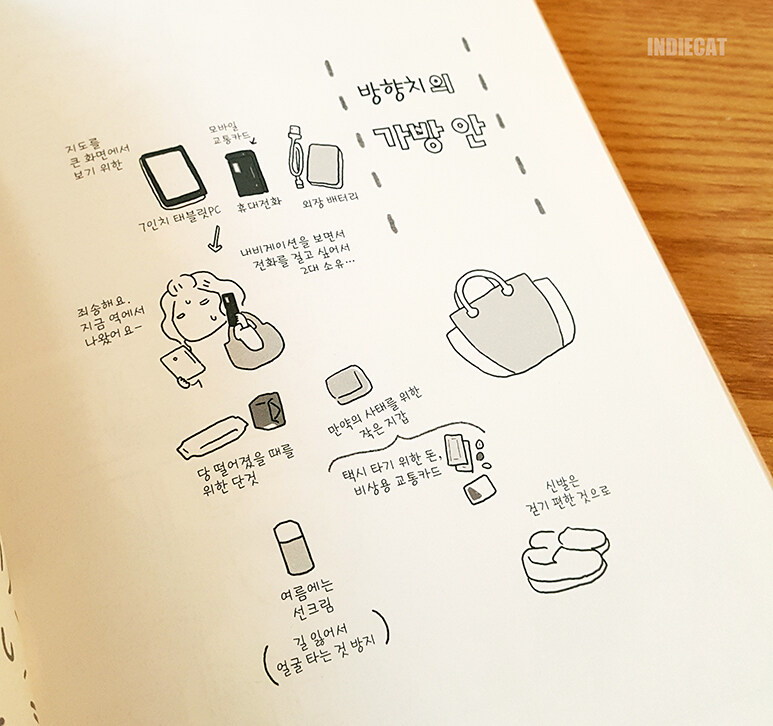 INDIECAT
방향치의
가방 안
지도를
큰 화면에서
보기 위한
7인치 태블릿PC
모바일
교통카드
휴대전화
외장 배터리
내비게이션을 보면서
전화를 걸고 싶어서
2대 소유...
죄송해요.
지금 역에서
나왔어요~
당 떨어졌을 때를
위한 단것
만약의 사태를 위한
작은 지갑
택시 타기 위한 돈,
비상용 교통카드
신발은
걷기 편한 것으로
여름에는
선크림
(길 잃어서
얼굴 타는 것 방지)